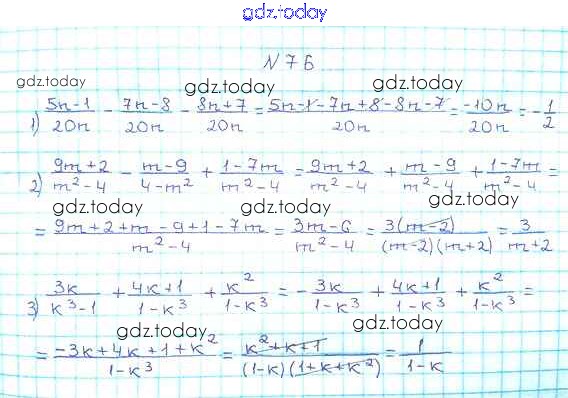 gdz.today
N 76
gdz.today gdz.today gdz.today
1) (5n-1)/20n - (7n-8)/20n - (8n+7)/20n = (5n-1-7n+8-8n-7)/20n = -10n/20n = -1/2
gdz.today gdz.today gdz.today
2) (9m+2)/(m²-4) - (m-9)/(4-m²) + (1-7m)/(m²-4) = (9m+2)/(m²-4) + (m-9)/(m²-4) + (1-7m)/(m²-4) =
gdz.today gdz.today gdz.today
= (9m+2+m-9+1-7m)/(m²-4) = (3m-6)/(m²-4) = 3(m-2)/((m-2)(m+2)) = 3/(m+2)
3) 3k/(k³-1) + (4k+1)/(1-k³) + k²/(1-k³) = -3k/(1-k³) + (4k+1)/(1-k³) + k²/(1-k³) =
gdz.today gdz.today gdz.today
= (-3k+4k+1+k²)/(1-k³) = (k²+k+1)/((1-k)(1+k+k²)) = 1/(1-k)